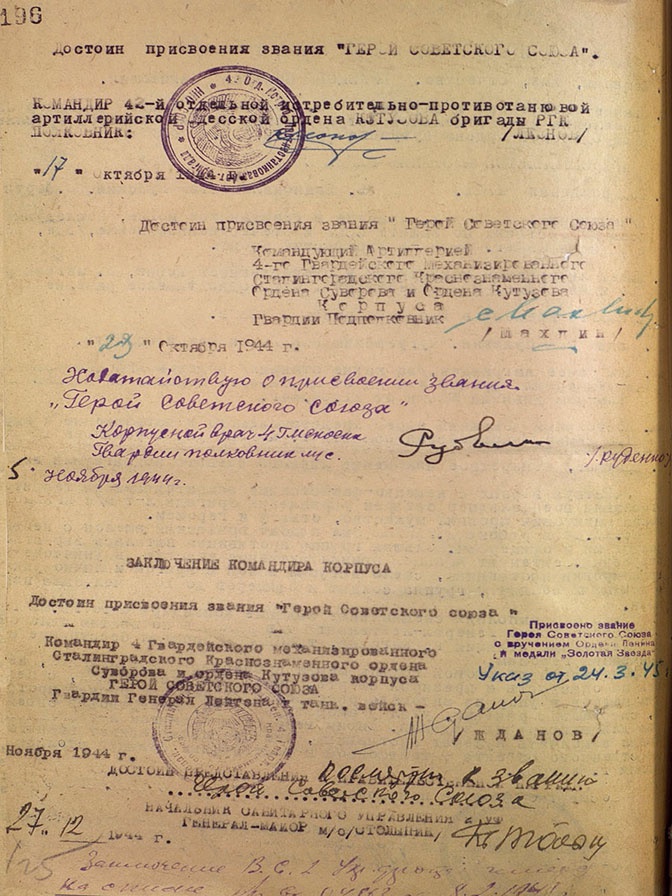 196
Достоин присвоения звания "ГЕРОЙ СОВЕТСКОГО СОЮЗА".
КОМАНДИР 42-й отдельной истребительно-противотанковой
артиллерийской ордена КУТУЗОВА бригады РГК
ПОЛКОВНИК:
"17" октября 1944
Достоин присвоения звания " Герой Советского Союза "
Командующий Артиллерией
4-го Гвардейского Механизированного
Сталинградского Краснознаменного
Ордена Суворова и Ордена Кутузова
Корпуса
Гвардии Подполковник
/Шахлин/
" " Октября 1944 г.
Ходатайствую о присвоении звания
"Герой Советского Союза"
Корпусной врач 4
Гвардии полковник м/с.
/Руденко
5 Ноября 1944г.
ЗАКЛЮЧЕНИЕ КОМАНДИРА КОРПУСА
Достоин присвоения звания "Герой Советского союза "
Присвоено звание
Героя Советского Союза
с вручением Ордена Ленина
и медали „Золотая Звезда"
Указ от 24.3.45
Командир 4 Гвардейского механизированного
Сталинградского Краснознаменного ордена
Суворова и ордена Кутузова корпуса
ГЕРОЙ СОВЕТСКОГО СОЮЗА
Гвардии Генерал Лейтенант танк. войск -
/ЖДАНОВ/
Ноября 1944 г.
ДОСТОИН к званию
Герой Советского Союза
НАЧАЛЬНИК САНИТАРНОГО УПРАВЛЕНИЯ
ГЕНЕРАЛ-МАЙОР М/С/СТОЛЫПИН/
27 12 1944 г.
Заключение В.С.